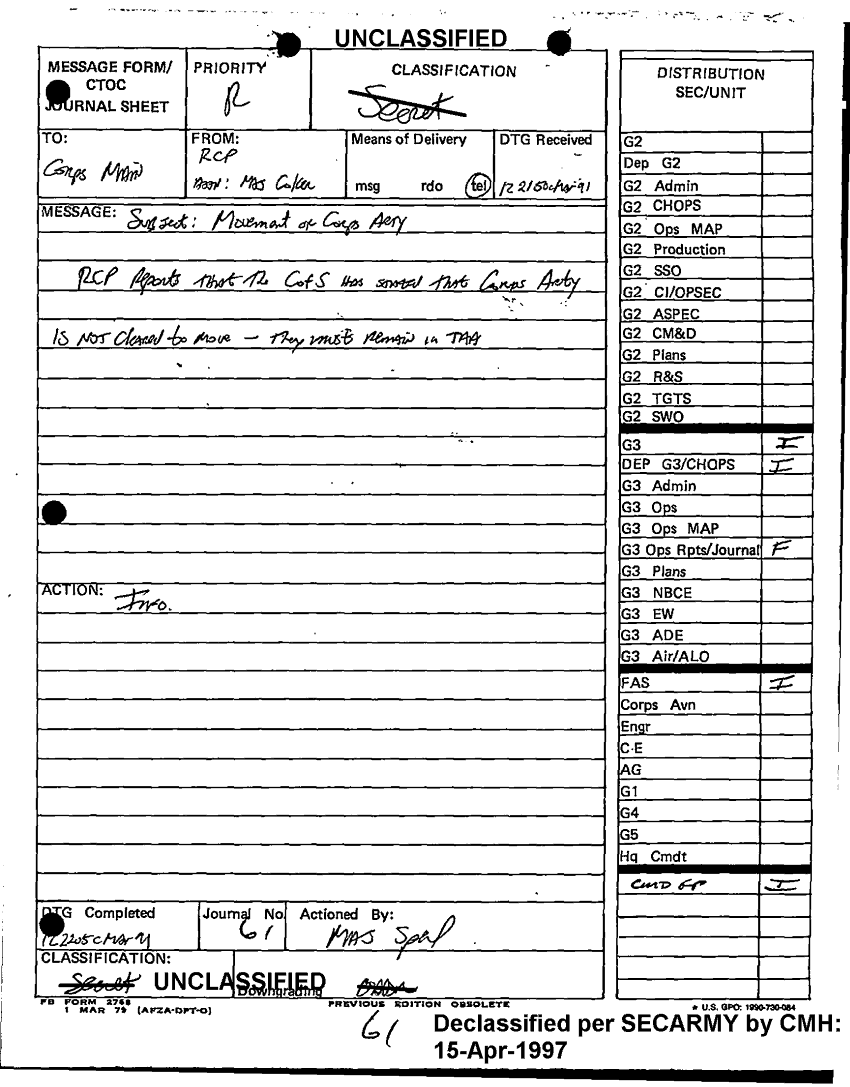 UNCLASSIFIED
MESSAGE FORM/
CTOC
JOURNAL SHEET
PRIORITY
R
CLASSIFICATION
Secret
TO:
Corps MAIN
FROM:
RCP
MAJ
Means of Delivery
msg rdo tel
DTG Received
122150cMar91
MESSAGE: Subject: Movement of Corps Arty
RCP Reports that the CofS Has stated that Corps Arty
IS NOT Cleared to move – They must Remain in TAA
ACTION: Info.
DTG Completed
122205CMar91
Journal No.
61
Actioned By:
MAJ
CLASSIFICATION:
Secret UNCLASSIFIED
Downgrading
FB FORM 2768
1 MAR 79 (AFZA-DPT-O)
PREVIOUS EDITION OBSOLETE
61
DISTRIBUTION
SEC/UNIT
G2
Dep G2
G2 Admin
G2 CHOPS
G2 Ops MAP
G2 Production
G2 SSO
G2 CI/OPSEC
G2 ASPEC
G2 CM&D
G2 Plans
G2 R&S
G2 TGTS
G2 SWO
G3 I
DEP G3/CHOPS I
G3 Admin
G3 Ops
G3 Ops MAP
G3 Ops Rpts/Journal F
G3 Plans
G3 NBCE
G3 EW
G3 ADE
G3 Air/ALO
FAS I
Corps Avn
Engr
C-E
AG
G1
G4
G5
Hq Cmdt
CMD GP I
* U.S. GPO: 1990-730-084
Declassified per SECARMY by CMH:
15-Apr-1997